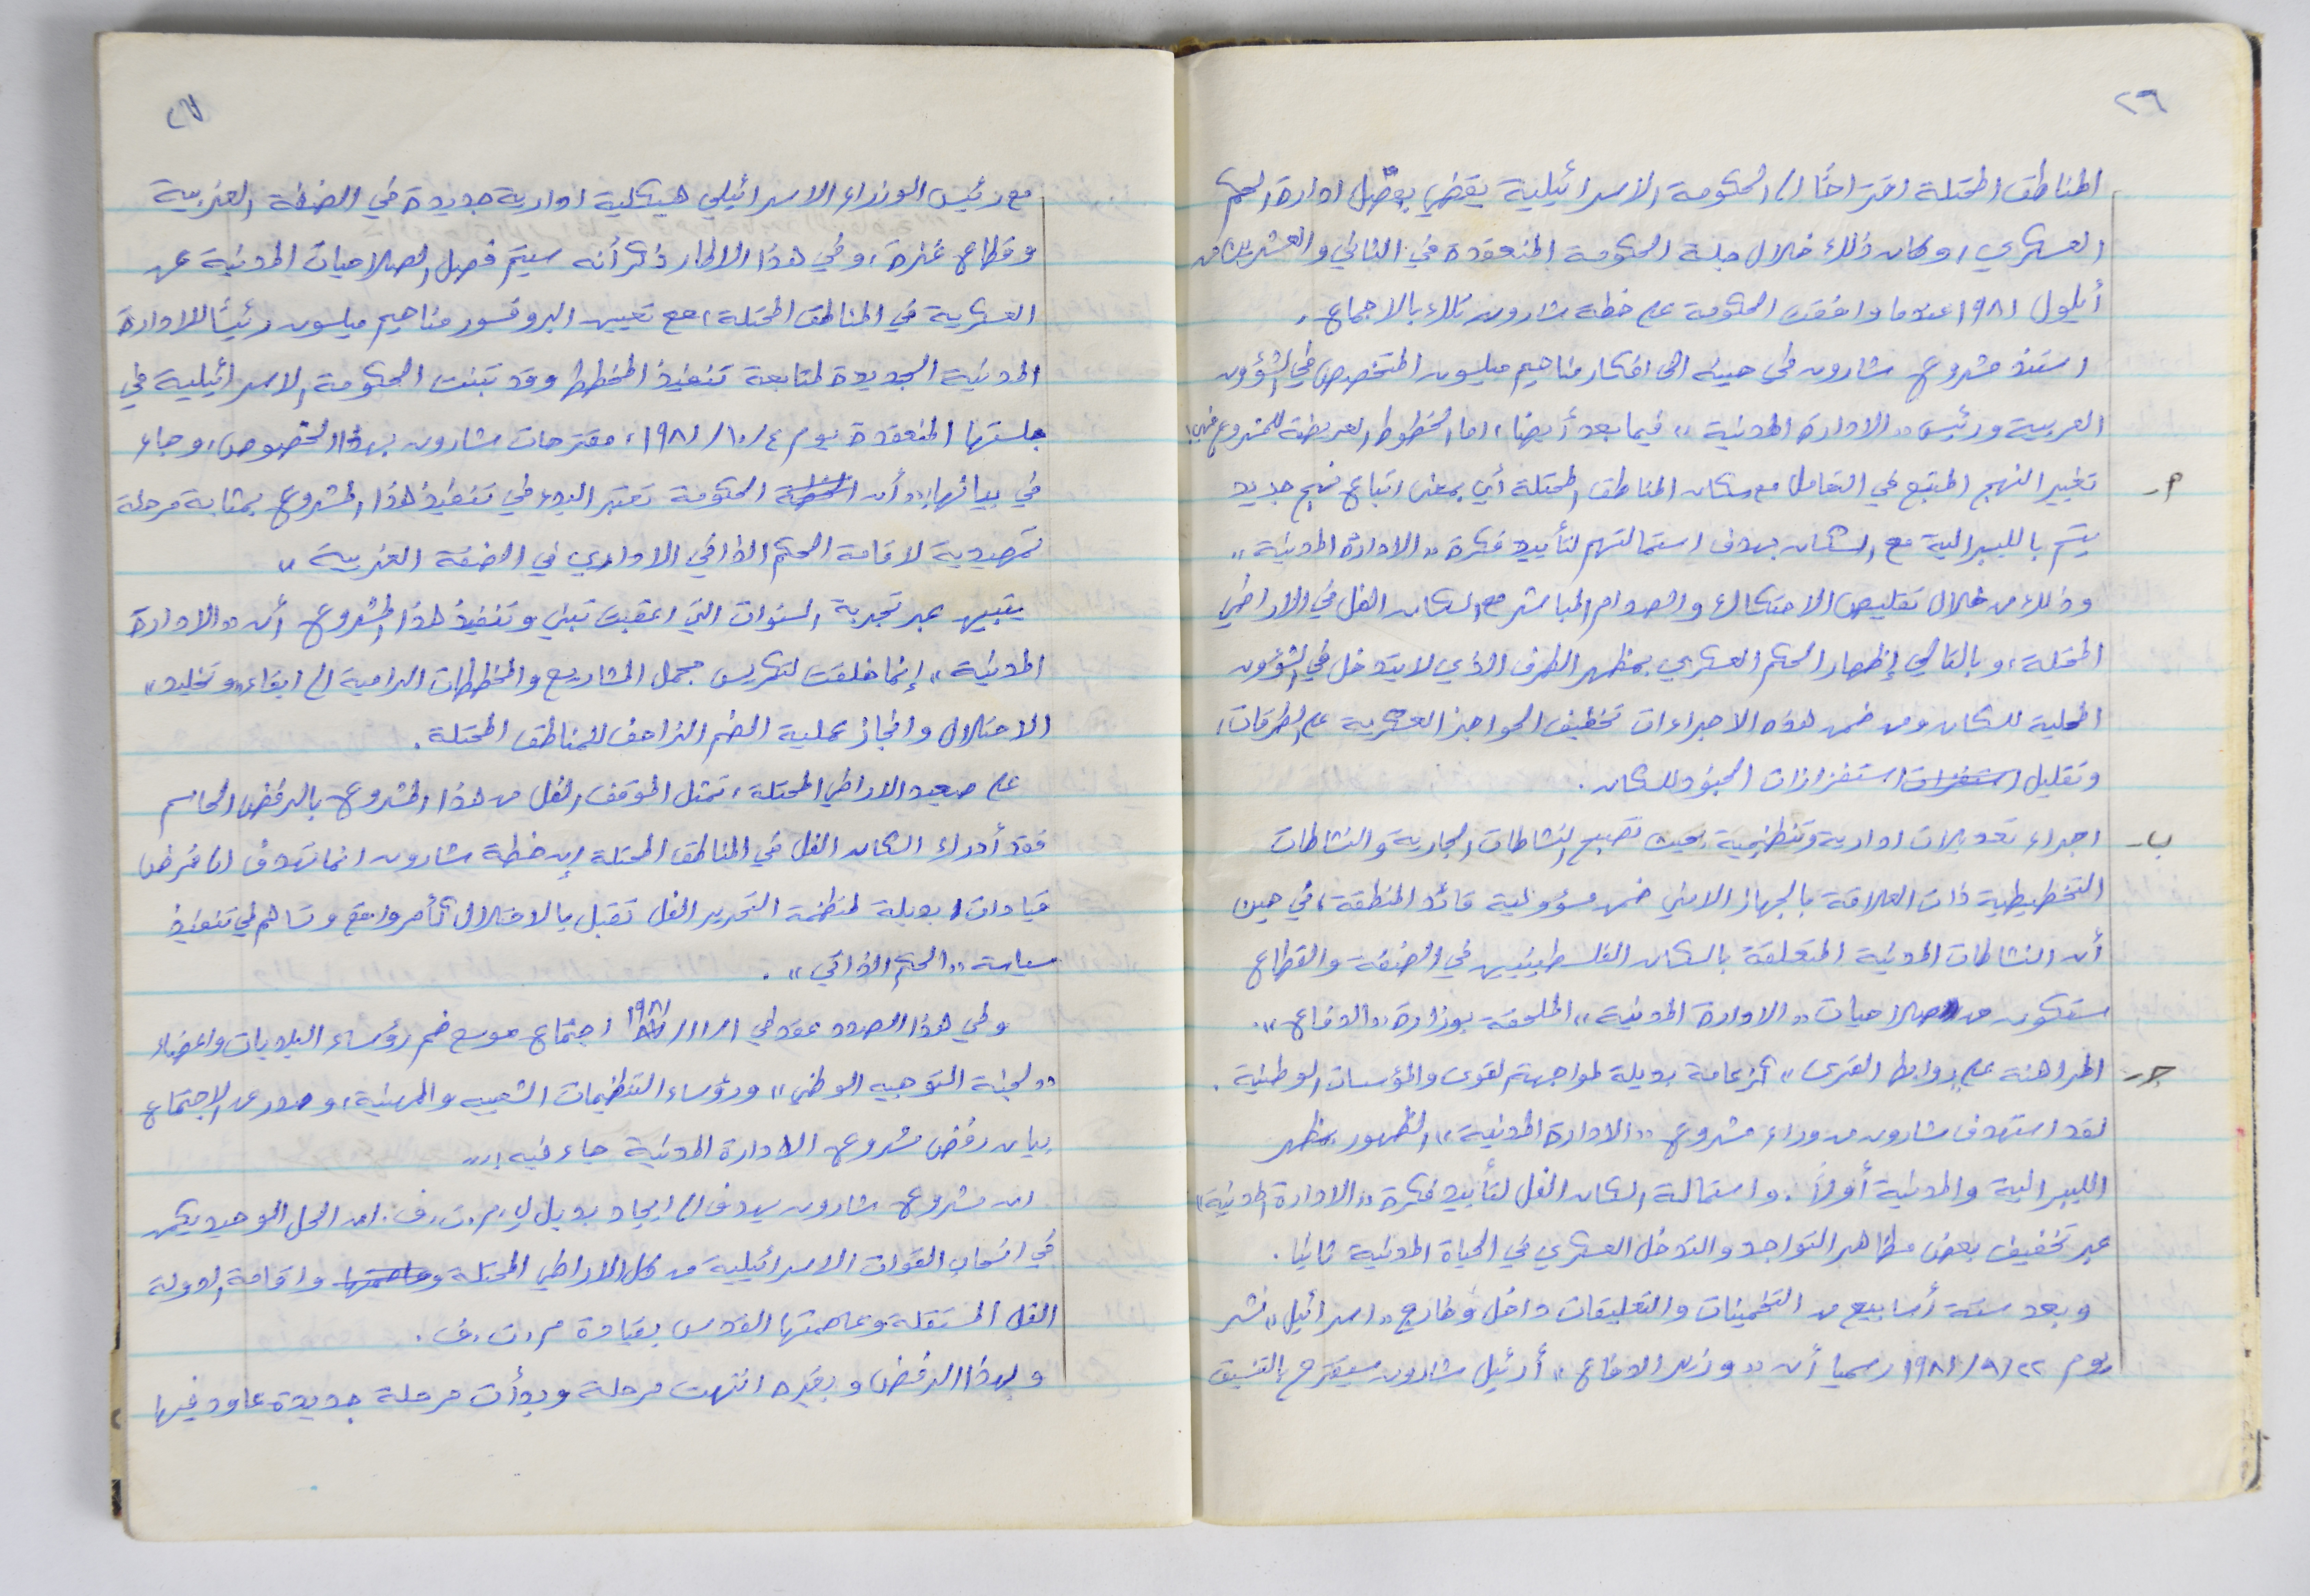 ٢٦
المناطق المحتلة اقتراحًا الى الحكومة الاسرائيلية يقضي بفصل ادارة الحكم
العسكري، وكان ذلك خلال جلسة الحكومة المنعقدة في الثاني والعشرين من
أيلول ١٩٨١ عندما وافقت الحكومة على خطة شارون تلك بالاجماع.
استند مشروع شارون في حينه الى افكار مناحيم ميلسون المتخصص في الشؤون
العربية ورئيس «الادارة المدنية» فيما بعد أيضا، اما الخطوط العريضة للمشروع فهي:
أ- تغيير النهج المتبع في التعامل مع سكان المناطق المحتلة أي بمعنى اتباع نهج جديد
يتم بالليبرالية مع السكان بهدف استمالتهم لتأييد فكرة «الادارة المدنية»
وذلك من خلال تقليص الاحتكاك والصدام المباشر مع السكان الفل في الاراضي
المحتلة، وبالتالي إظهار الحكم العسكري بمظهر الطرف الذي لا يتدخل في الشؤون
المحلية للسكان ومن ضمن هذه الاجراءات تخفيف الحواجز العسكرية على الطرقات،
وتقليل استفزازات الجنود للسكان.
ب- اجراء تعديلات ادارية وتنظيمية بحيث تصبح النشاطات الجارية والنشاطات
التخطيطية ذات العلاقة بالجهاز الامني ضمن مسؤولية قائد المنطقة، في حين
أن النشاطات المدنية المتعلقة بالسكان الفلسطينيين في الضفة والقطاع
ستكون من صلاحيات «الادارة المدنية» الملحقة بوزارة «الدفاع».
ج- المراهنة على «روابط القرى» كزعامة بديلة لمواجهة القوى والمؤسسات الوطنية.
لقد استهدف شارون من وراء مشروع «الادارة المدنية»، الظهور بمظهر
الليبرالية والمدنية أولاً. واستمالة السكان الفل لتأييد فكرة «الادارة المدنية»
عبر تخفيف بعض مظاهر التواجد والتدخل العسكري في الحياة المدنية ثانيا.
وبعد ستة أسابيع من التخمينات والتعليقات داخل وخارج «اسرائيل» نشر
يوم ٢٢/٩/١٩٨١ رسميا أن «وزير الدفاع» أرئيل شارون سيقترح بالتنسيق
٢٧
مع رئيس الوزراء الاسرائيلي هيكلية ادارية جديدة في الضفة الغربية
وقطاع غزة، وفي هذا الاطار ذكر أنه سيتم فصل الصلاحيات المدنية عن
العسكرية في المناطق المحتلة، مع تعيين البروفسور مناحيم ميلسون رئيسًا للادارة
المدنية الجديدة لمتابعة تنفيذ المخطط وقد تبنت الحكومة الاسرائيلية في
جلستها المنعقدة يوم ٤/١٠/١٩٨١، مقترحات شارون بهذا الخصوص، وجاء
في بيانها: «أن الحكومة تعتبر البدء في تنفيذ هذا المشروع بمثابة مرحلة
تمهيدية لاقامة الحكم الذاتي الاداري في الضفة الغربية»
يتبين عبر تجربة السنوات التي اعقبت تبني وتنفيذ هذا المشروع أن «الادارة
المدنية» إنما خلقت لتكريس مجمل المشاريع والمخططات الرامية الى ابقاء «وتخليد»
الاحتلال وانجاز عملية الضم الزاحف للمناطق المحتلة.
على صعيد الاراضي المحتلة، تمثل الموقف الفل من هذا المشروع بالرفض الحاسم
فقد أدرك السكان الفل في المناطق المحتلة إن خطة شارون انما تهدف الى فرض
قيادات بديلة لمنظمة التحرير الفل تقبل بالاحتلال كأمر واقع وتساهم في تنفيذ
سياسة «الحكم الذاتي».
وفي هذا الصدد عقد في ١٩٨١ اجتماع موسع ضم رؤساء البلديات واعضاء
«لجنة التوجيه الوطني» ورؤساء التنظيمات الشعبيه والمهنية، وصدر عن الاجتماع
بيان رفض مشروع الادارة المدنية جاء فيه:
ان مشروع شارون يهدف الى ايجاد بديل لـ م.ت.ف. ان الحل الوحيد يكمن
في انسحاب القوات الاسرائيلية من كل الاراضي المحتلة وعاصمتها واقامة الدولة
الفل المستقلة وعاصمتها القدس بقيادة م.ت.ف.
وبهذا الرفض وبغيره انتهت مرحلة وبدأت مرحلة جديدة عاود فيها